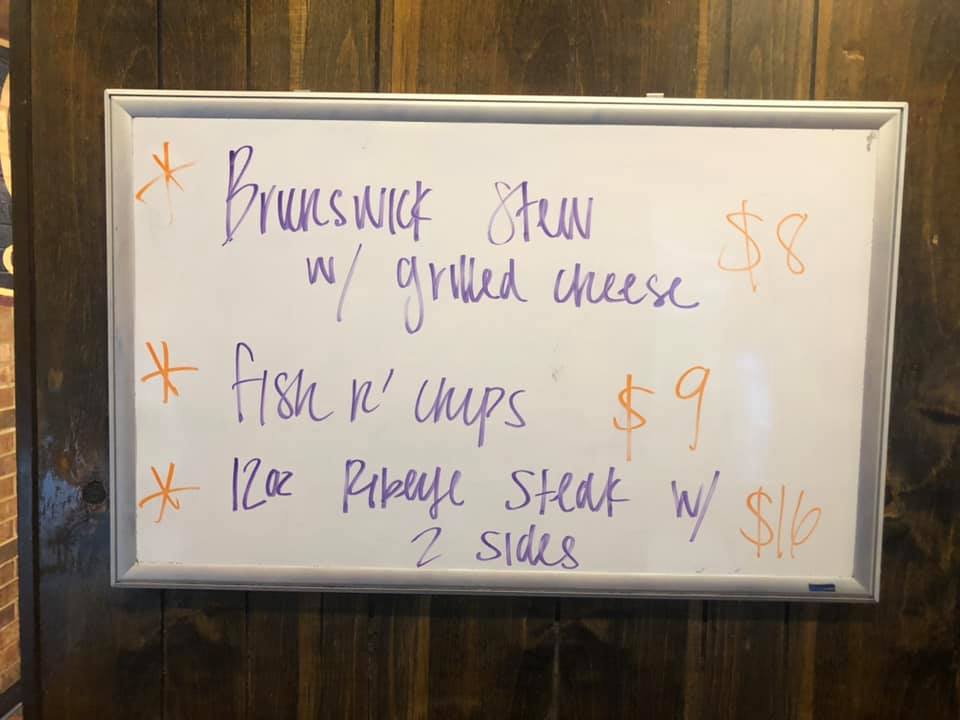 * Brunswick Stew $8
w/ grilled cheese
* fish n' chips $9
* 12oz Ribeye Steak w/ $16
2 sides